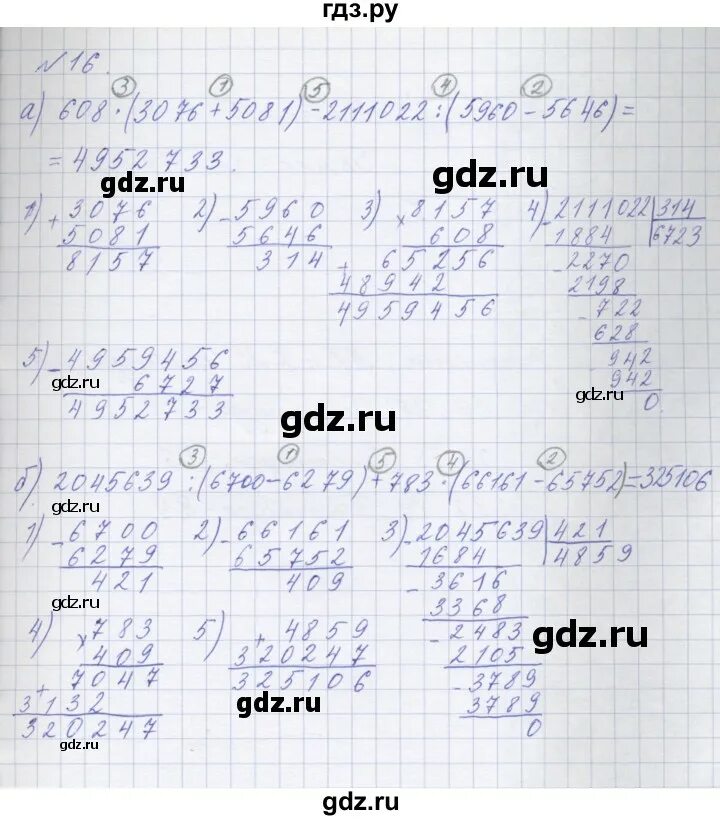 гдз.ру
№16.
3 1 5 4 2
а) 608·(3076+5081)-2111022:(5960-5646)=
=4952733.
gdz.ru
gdz.ru
1) +3076
5081
8157
2) -5960
5646
314
3) ×8157
608
+65256
48942
4959456
4) -2111022 | 314
1884 6723
-2270
2198
-722
628
-942
942
0.
5) -4959456
6727
4952733
gdz.ru
gdz.ru
3 1 5 4 2
б) 2045639:(6700-6279)+783·(66161-65752)=325106
gdz.ru
1) -6700
6279
421
2) -66161
65752
409
3) -2045639 | 421
1684 4859
-3616
3368
-2483
2105
-3789
3789
0
gdz.ru
gdz.ru
4) ×783
409
+7047
3132
320247
5) +4859
320247
325106
gdz.ru
gdz.ru
gdz.ru